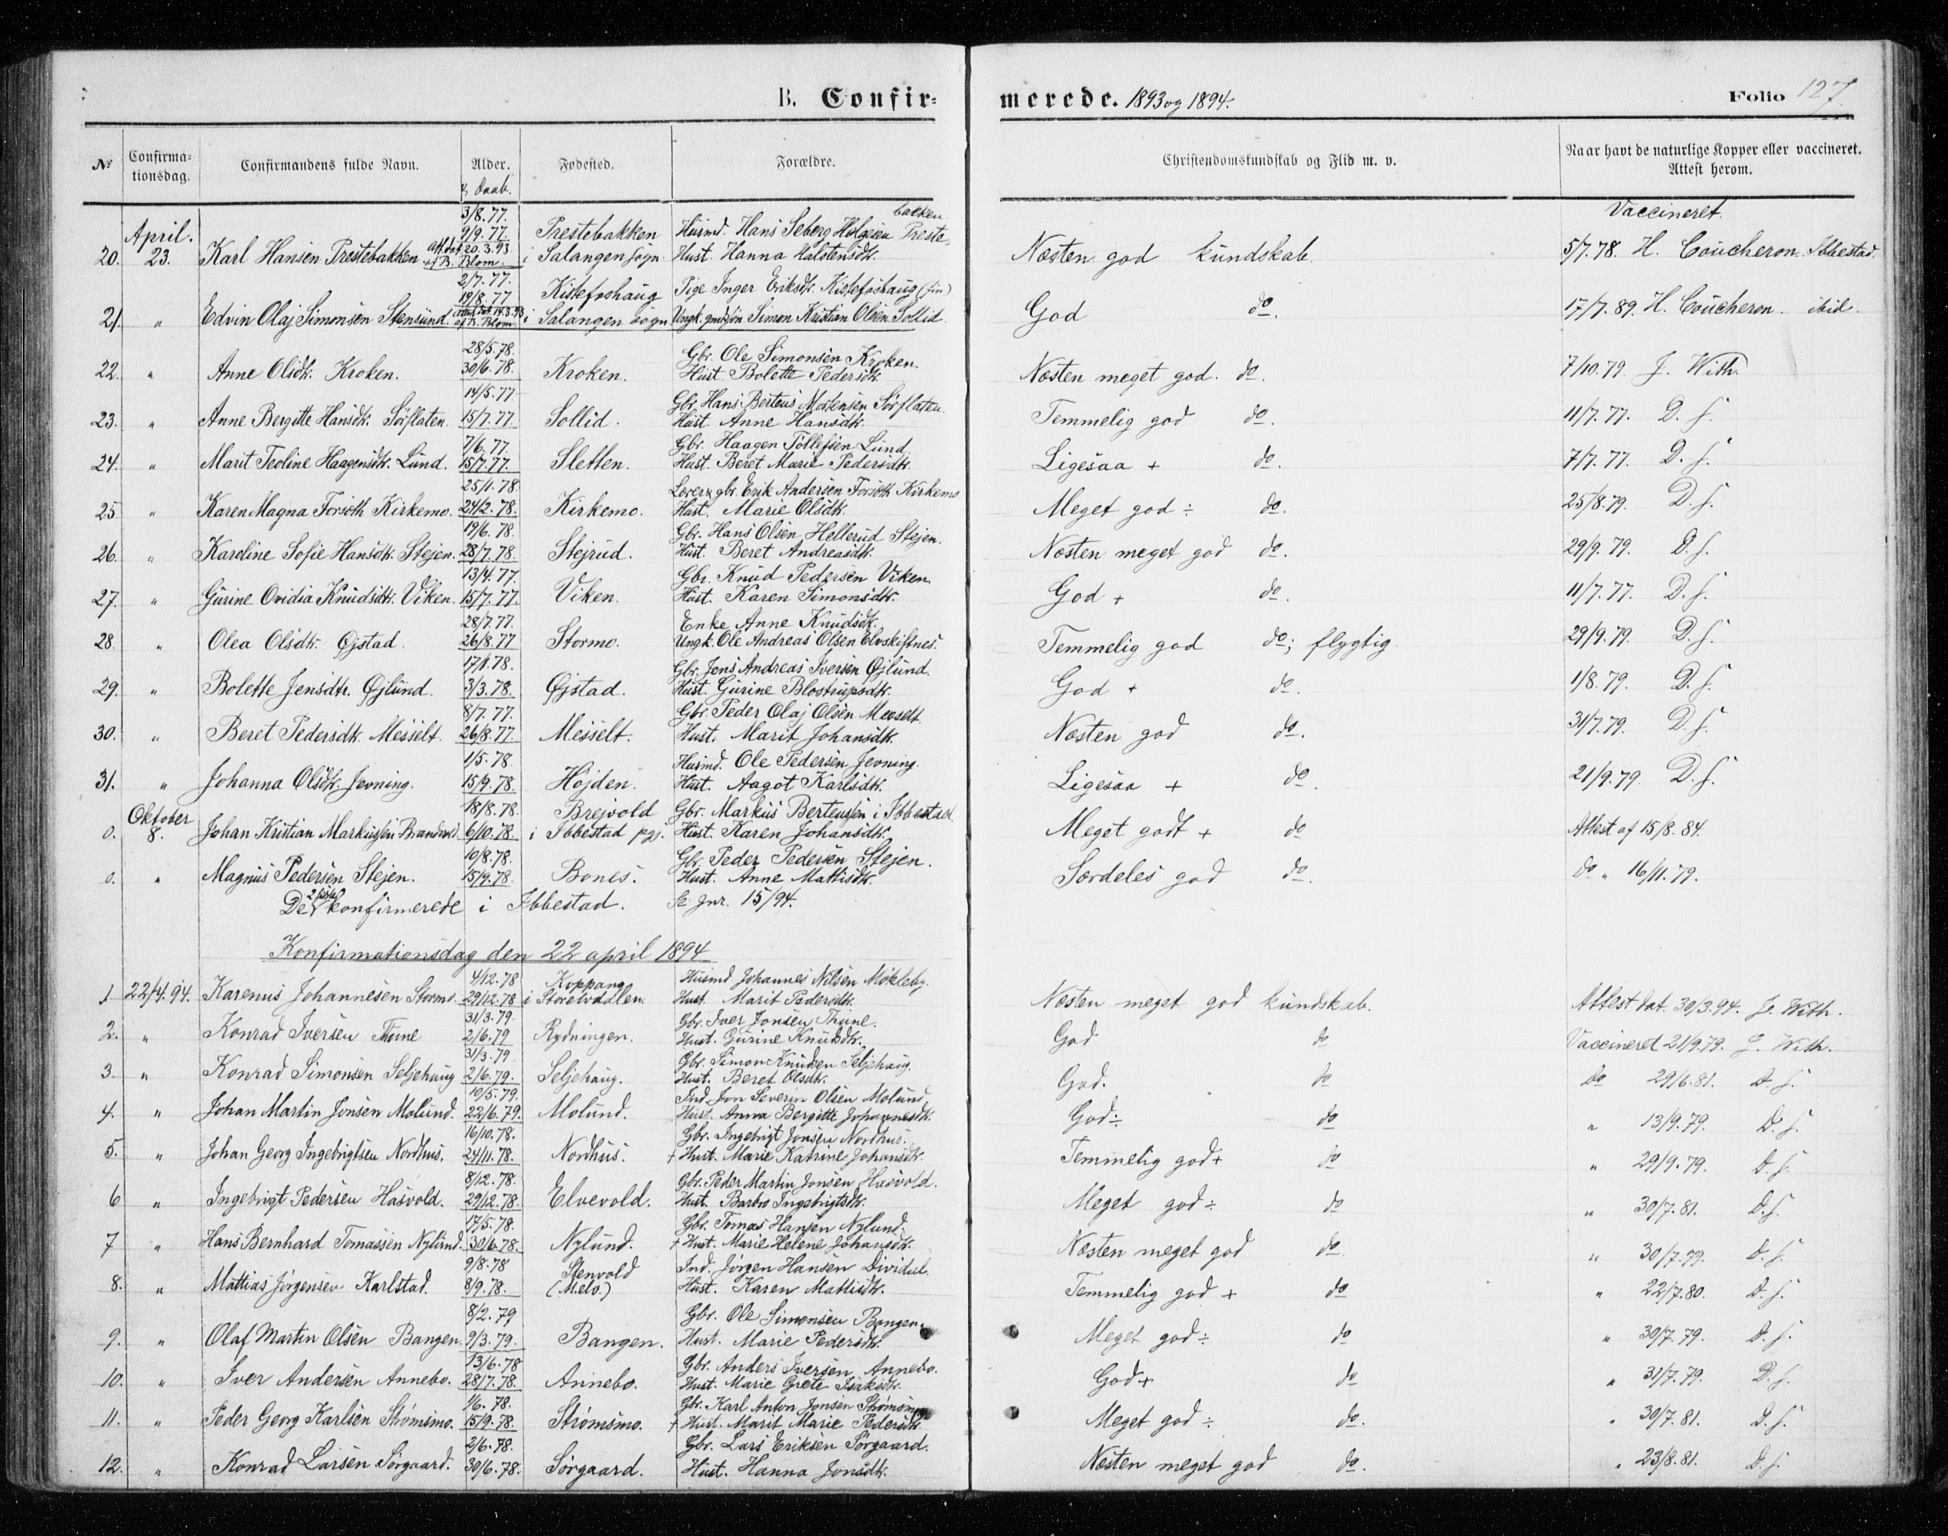 B. Confirmerede. 1893 og 1894. Folio 127.
№ Confirmationsdag. Confirmandens fulde Navn. Alder. Fødested. Forældre. Christendomskundskab og Flid m. v. Naar havt de naturlige Kopper eller vaccineret. Attest herom.
& daab. Vaccineret.
April. 3/8.77. bakken
9/9.77. Prestebakken Husmd. Hans Seberg Holgesen Preste-
20. 23. Karl Hansen Prestebakken att. dat. 20.3.93 af B. Blom. i Salangen sogn Hust. Hanna Halstensdtr. Næsten god kundskab 5/7.78. H. Coucheron. Ibbestad.
2/7.77.
19/8.77 Kistefoshaug Pige Inger Eriksdtr. Kistefoshaug (fin)
21. " Edvin Olaj Simonsen Stensund. 14.3.93 af B. Blom. i Salangen sogn Ungk. gmdsøn Simon Kristian Olsen Sollid. God do. 17/7.89. H. Coucheron. ibid.
28/5.78. Gbr. Ole Simonsen Kroken.
22. " Anne Olsdtr. Kroken. 30/6.78. Kroken. Hust. Bolette Pedersdtr. Næsten meget god. do. 7/10.79. J. With.
14/5.77 Gbr. Hans Berteus Mortensen Sørflaten.
23. " Anne Bergitte Hansdtr. Sørflaten. 15/7.77. Sollid. Hust. Anne Hansdtr. Temmelig god do. 11/7.77. D. s.
7/6.77. Gbr. Haagen Tollefsen Lund.
24. " Marit Teoline Haagensdtr. Lund. 15/7.77. Sletten. Hust. Beret Marie Pedersdtr. Ligesaa + do. 7/7.77. D. s.
25/1.78. Lærer & gbr. Erik Andersen Forseth Kirkemo
25. " Karen Magna Forseth Kirkemo. 24/2.78. Kirkemo. Hust. Marie Olsdtr. Meget god ÷ do. 25/8.79. D. s.
19/6.78 Gbr. Hans Olsen Hellerud Stejen.
26. " Karoline Sofie Hansdtr. Stejen. 28/7.78. Stejrud. Hust. Beret Andreasdtr. Næsten meget god do. 29/9.79. D. s.
13/4.77. Gbr. Knud Pedersen Viken.
27. " Gurine Ovidia Knudsdtr. Viken. 15/7.77. Viken. Hust. Karen Simonsdtr. God + do. 11/7.77. D. s.
28/7.77. Enke Anne Knudsdtr.
28. " Olea Olsdtr. Øjstad. 26/8.77 Stormo. Ungk. Ole Andreas Olsen Elvskiftnes. Temmelig god do; flygtig. 29/9.79. D. s.
17/1.78. Gbr. Jens Andreas Iversen Øjlund.
29. " Bolette Jensdtr. Øjlund. 3/3.78. Øjstad. Hust. Gurine Blostrupsdtr. God + do. 1/8.79. D. s.
8/7.77. Gbr. Peder Olaj Olsen Messelt
30. " Beret Pedersdtr. Messelt. 26/8.77. Messelt. Hust. Marit Johansdtr. Næsten god do. 31/7.79. D. s.
1/5.78. Husmd. Ole Pedersen Jevning.
31. " Johanna Olsdtr. Jevning. 15/9.78. Højden. Hust. Aagot Karlsdtr. Ligesaa + do. 21/9.79. D. s.
Oktober 18/8.78. Brejvold Gbr. Markus Berteussen i Ibbestad
0. 8. Johan Kristian Markussen Brandvold 6/10.78. i Ibbestad pgj. Hust. Karen Johansdtr. Meget godt + do Attest af 15/8.84.
10/8.78. Gbr. Peder Pedersen Stejen.
0. " Magnus Pedersen Stejen. 15/9.78. Bones. Hust. Anne Mattisdtr. Særdeles god do. do " 16/11.79.
De 2 sidste konfirmerede i Ibbestad. Se Jnr. 15/94.
Konfirmationsdag den 22 april 1894
4/12.78 Koppang Husmd Johannes Nilsen Mökleby.
1 22/4.94. Karenus Johannesen Stormo. 29/12.78 i Storelvdalen Hust. Marit Pedersdtr. Næsten meget god kundskab. Attest dat. 30/3.94. J. With.
31/3.79. Gbr. Iver Jonsen Thune.
2. " Konrad Iversen Thune 2/6.79 Rydningen. Hust. Gurine Knudsdtr. God do Vaccineret 21/9.79. J. With.
31/3.79 Gbr. Simon Knudsen Seljehaug.
3. " Konrad Simonsen Seljehaug 2/6.79. Seljehaug. Hust. Beret Olsdtr. God. do do 29/6.81. D. s.
10/5.79. Ind. Jon Severin Olsen Molund.
4. " Johan Martin Jonsen Molund. 22/6.79 Molund. Hust. Anna Bergitte Johannesdtr. God ÷ do " 13/9.79. D. s.
16/10.78. Gbr. Ingebrigt Jonsen Nordhus.
5. " Johan Georg Ingebrigtsen Nordhus. 24/11.78. Nordhus. + Hust. Marie Katrine Johansdtr. Temmelig god + do " 29/9.79. D. s.
8/12.78. Gbr. Peder Martin Jonsen Hasvold.
6 " Ingebrigt Pedersen Hasvold. 29/12.78. Elvevold. Hust. Barbro Ingebrigtsdtr. Meget god ÷ do " 30/7.81. D. s.
17/5.78. Gbr. Tomas Hansen Nylund.
7 " Hans Bernhard Tomassen Nylund. 30/6.78. Nylund. + Hust. Marie Helene Johansdtr. Næsten meget god do " 30/7.79. D. s.
9/8.78 Stenvold Ind. Jørgen Hansen Dividal.
8. " Mattias Jørgensen Karlstad. 8/9.78. (Melø.) Hust. Karen Mattisdtr. Temmelig god + do " 22/7.80. D. s.
8/2.79 Gbr. Ole Simonsen Bangen.
9. " Olaf Martin Olsen Bangen. 9/3.79. Bangen. Hust. Marie Pedersdtr. Meget god ÷ do " 30/7.79. D. s.
13/6.78 Gbr. Anders Iversen Annebo.
10. " Iver Andersen Annebo. 28/7.78. Annebo. Hust. Marie Grete Eriksdtr. God + do " 31/7.79. D. s.
1/6.78. Gbr. Karl Anton Jonsen Strømsmo
11. " Peder Georg Karlsen Strømsmo. 15/9.78. Strømsmo. + Hust. Marit Marie Pedersdtr. Meget god ÷ do. " 30/7.81. D. s.
2/6.78. Gbr. Lars Eriksen Sørgaard.
12. " Konrad Larsen Sørgaard. 30/6.78. Sørgaard. Hust. Hanna Jonsdtr. Næsten meget god do. " 23/8.81. D. s.